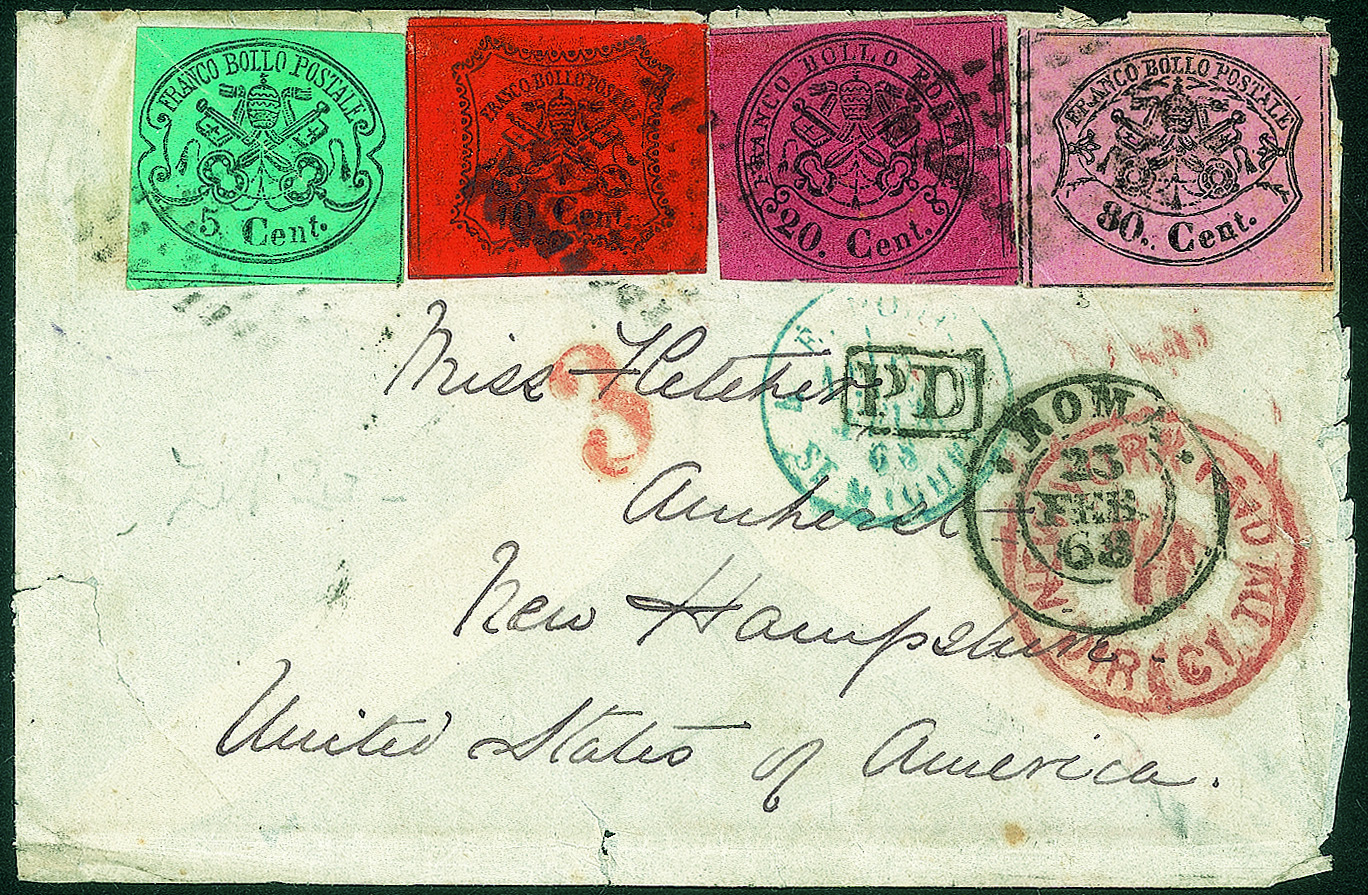 FRANCO BOLLO POSTALE
5 Cent.
FRANCO BOLLO POSTALE
10 Cent.
FRANCO BOLLO POSTALE
20. Cent.
FRANCO BOLLO POSTALE
80.. Cent.
Miss Fletcher
3
PD
68
ROMA
23
FEB
68
DIRECT
Amherst
New Hampshire.
United States of America.